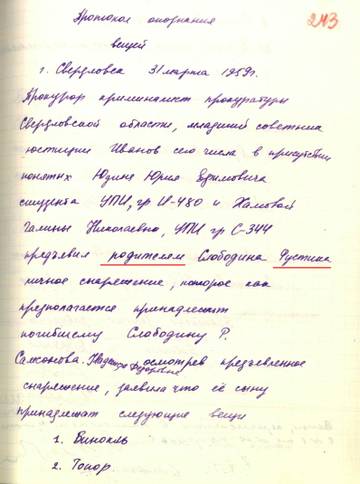 243
Протокол опознания
вещей
г. Свердловск 31 марта 1959г.
Прокурор криминалист прокуратуры
Свердловской области, младший советник
юстиции Иванов сего числа в присутствии
понятых Юдина Юрия Ефимовича
студента УПИ, гр И-480 и Хамовой
Галины Николаевны, УПИ гр С-344
предъявил родителям Слободина Рустика
личное снаряжение, которое как
предполагается принадлежит
погибшему Слободину Р.
осмотрев предъевленное
снаряжение, заявила что её сыну
принадлежат следующие вещи
1. Бинокль
2. Топор